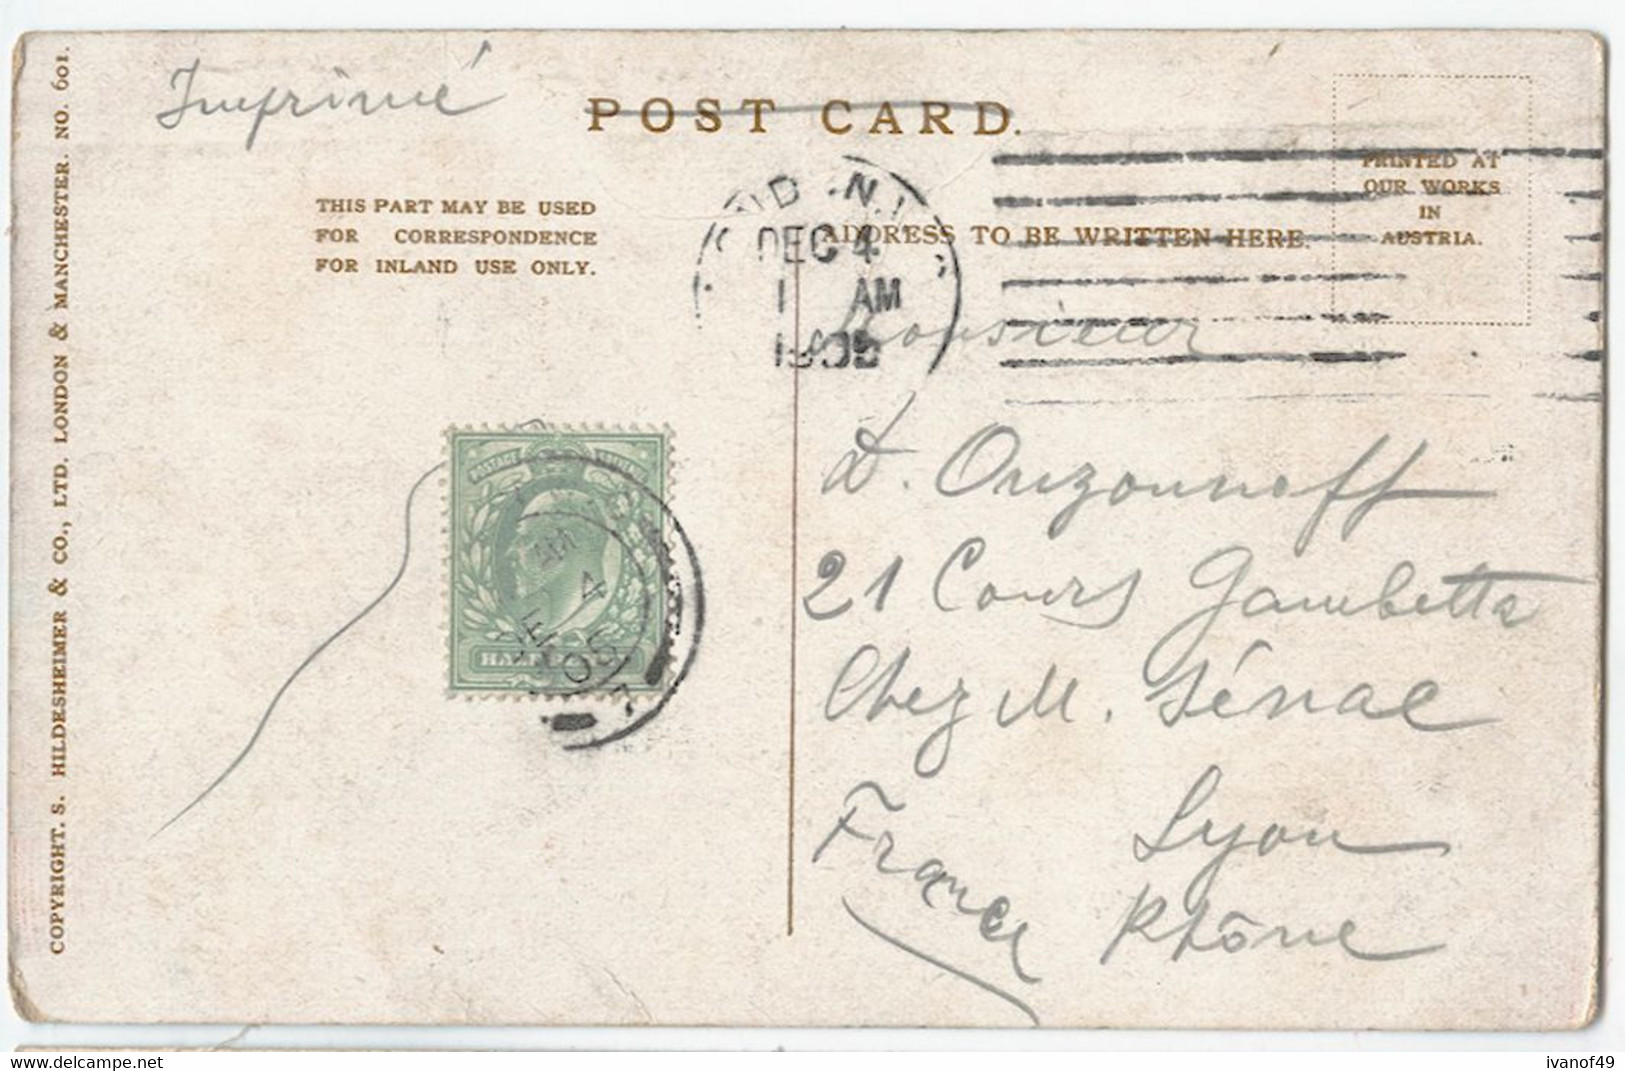 Imprimé
POST CARD.
THIS PART MAY BE USED
FOR CORRESPONDENCE
FOR INLAND USE ONLY.
ADDRESS TO BE WRITTEN HERE.
PRINTED AT
OUR WORKS
IN
AUSTRIA.
DEC 4
1 AM
Monsieur
D. Ouzounoff
21 Cours Gambetta
Chez M. Sénac
Lyon
Rhône
France
POSTAGE REVENUE
HALF
4
05
COPYRIGHT. S. HILDESHEIMER & CO., LTD. LONDON & MANCHESTER. NO. 601.
ivanof49